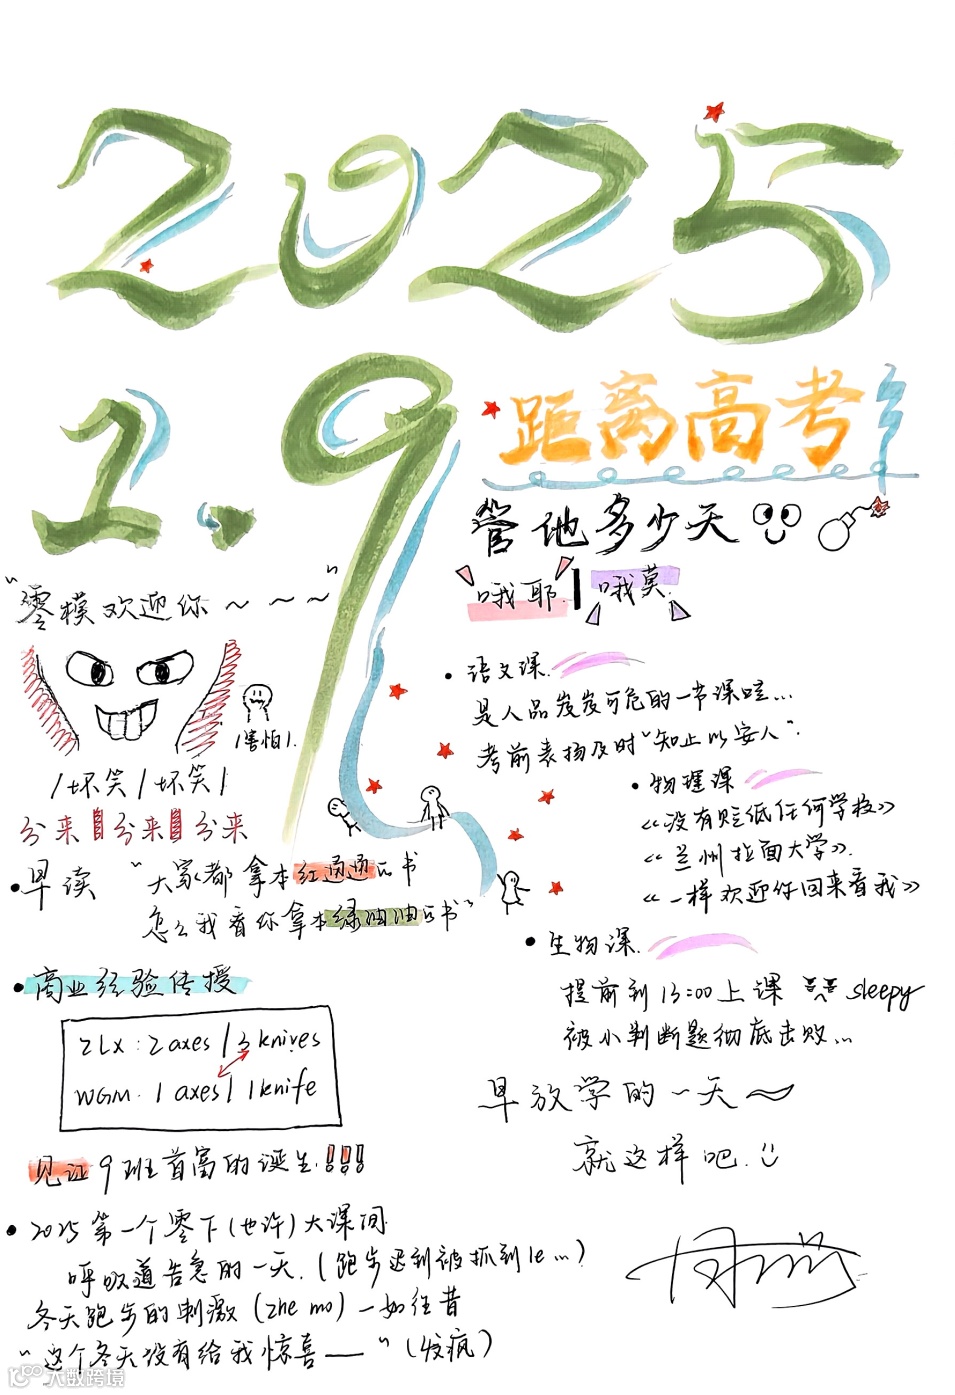 2025
1.9
距离高考
管他多少天
哦耶! 哦莫.
"零模欢迎你~~~"
/害怕/.
/坏笑/坏笑/
分来!分来!分来
• 早读 "大家都拿本红通通的书
怎么我看你拿本绿油油的书"
• 商业经验传授
ZLX:2 axes/3 knives
WGM. 1 axes/1 knife
见证9班首富的诞生!!!!
• 2025第一个零下(也许)大课间
呼吸道告急的一天.(跑步迟到被抓到le...)
冬天跑步的刺激(zhe mo)一如往昔
"这个冬天没有给我惊喜——"(发疯)
• 语文课.
是人品岌岌可危的一节课哇...
考前表扬及时"知止以安人".
• 物理课
《没有贬低任何学校》
《兰州拉面大学》.
《一样欢迎你回来看我》
• 生物课.
提前到13:00上课 sleepy
被小判断题彻底击败...
早放学的一天~
就这样吧.
大数跨境